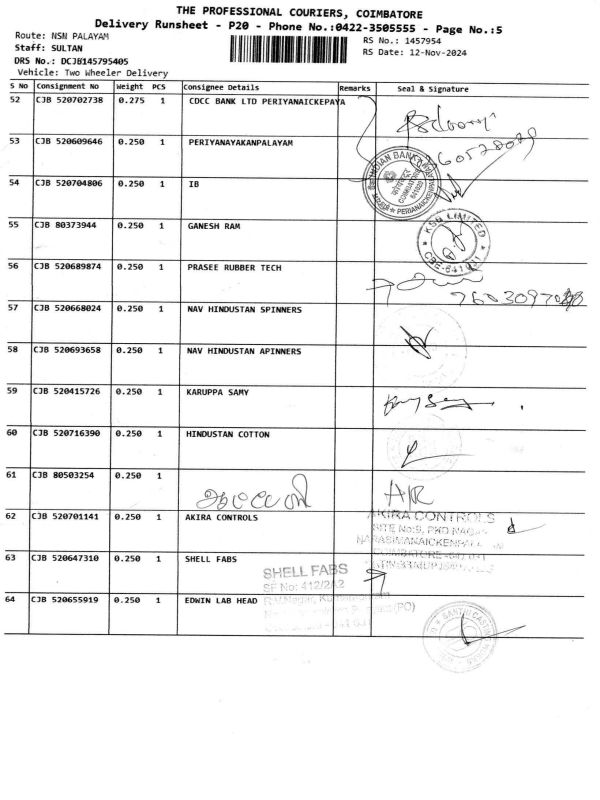 THE PROFESSIONAL COURIERS, COIMBATORE
Delivery Runsheet - P20 - Phone No.:0422-3505555 - Page No.:5
Route: NSN PALAYAM
RS No.: 1457954
Staff: SULTAN
RS Date: 12-Nov-2024
DRS No.: DCJB145795405
Vehicle: Two Wheeler Delivery
S No Consignment No Weight PCS Consignee Details Remarks Seal & Signature
52 CJB 520702738 0.275 1 CDCC BANK LTD PERIYANAICKEPAYA
53 CJB 520609646 0.250 1 PERIYANAYAKANPALAYAM
54 CJB 520704806 0.250 1 IB
INDIAN BANK
55 CJB 80373944 0.250 1 GANESH RAM
KSB LIMITED
56 CJB 520689874 0.250 1 PRASEE RUBBER TECH
57 CJB 520668024 0.250 1 NAV HINDUSTAN SPINNERS
58 CJB 520693658 0.250 1 NAV HINDUSTAN APINNERS
59 CJB 520415726 0.250 1 KARUPPA SAMY
60 CJB 520716390 0.250 1 HINDUSTAN COTTON
61 CJB 80503254 0.250 1
62 CJB 520701141 0.250 1 AKIRA CONTROLS
AKIRA CONTROLS
63 CJB 520647310 0.250 1 SHELL FABS
SHELL FABS
SF No: 412/2A2
64 CJB 520655919 0.250 1 EDWIN LAB HEAD